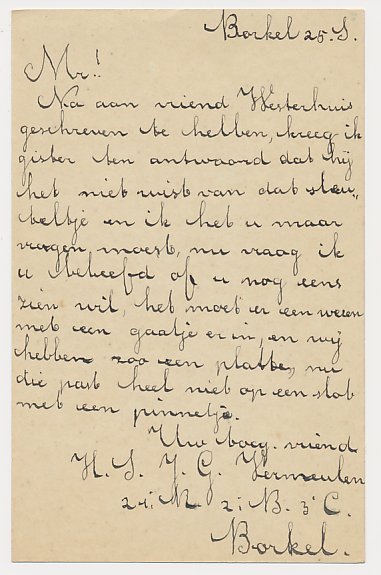 Borkel 25. S.
Mr!!
Na aan vriend Westerhuis
geschreven te hebben, kreeg ik
gister ten antwoord dat hij
het niet wist van dat sleu-
teltje en ik het u maar
vragen moest, nu vraag ik
u beleefd of u nog eens
zien wil, het moet er een wezen
met een gaatje er in, en wij
hebben zoo een platte, nu
die past heel niet op een slot
met een pinnetje.
Uw toeg. vriend
H. S. J. G. Vermeulen
2 i. B. 3e C.
Borkel.